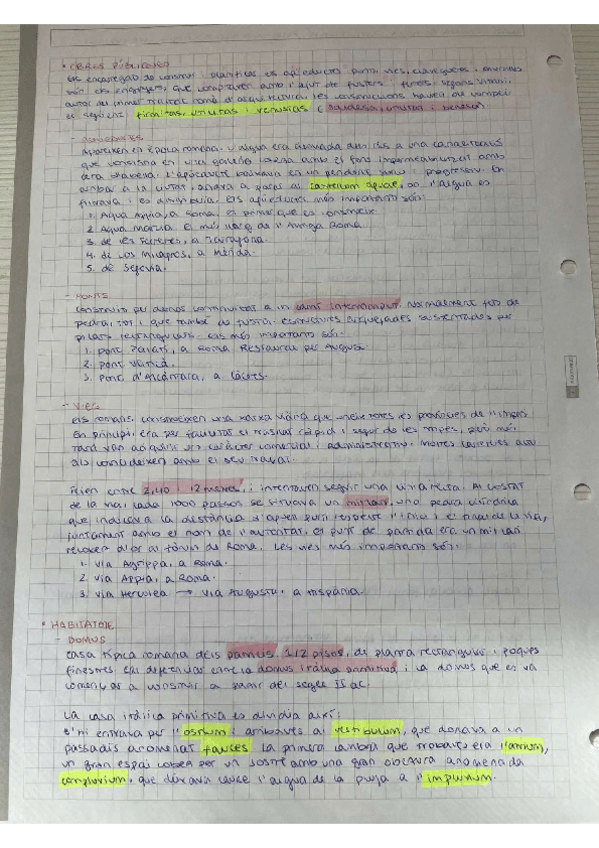 • OBRES PÚBLIQUES
els encarregats de construir i planificar els aqüeductes, ponts, vies, clavegueres i
són els enginyers, que comptaven amb l'ajut de fusters i ferrers. Segons Vitruvi,
autor del primer tractat romà d'arquitectura, les construccions havien de complir
el següent: firmitas, utilitas i venustas (solidesa, utilitat i bellesa)
- AQÜEDUCTES
Apareixen en època romana. L'aigua era a una
que consistia en una galeria amb el fons impermeabilitzat amb
L'aqüeducte baixava en un pendent suau i progressiu. En
arribar a la ciutat, anava a parar al castellum aquae, on l'aigua es
filtrava i es distribuïa. Els aqüeductes més importants són:
1. Aqua Appia, a Roma. el primer que es construeix.
2. Aqua Marcia. el més llarg de l'Antiga Roma.
3. de les Ferreres, a Tarragona.
4. de Los Milagros, a Mèrida.
5. de Segovia.
- PONTS
construïts per donar continuïtat a un camí interromput. Normalment fets de
pedra, tot i que també de fusta. estructures arquejades sustentades per
pilars rectangulars. Els més importants són:
1. pont Palatí, a Roma. Restaurat per August.
2. pont
3. Pont d'Alcántara, a Càceres.
- VIES
els romans construeixen una xarxa viària que uneix totes les províncies de l'imperi
En principi, era per facilitar el trasllat ràpid i segur de les tropes, però més
tard van adquirir un caràcter comercial i administratiu. Moltes carreteres
coincideixen amb el seu traçat.
Feien entre 2,40 i 12 metres, i intentaven seguir una línia recta. Al costat
de la via, cada 1000 passos se situava un mil·liari, una pedra cilíndrica
que indicava la distància d'aquell punt respecte l'inici i el final de la via,
juntament amb el nom de l'autoritat. el punt de partida era un mil·liari
recobert d'or al fòrum de Roma. Les vies més importants són:
1. via Agrippa, a Roma.
2. via Appia, a Roma.
3. via Herculea → via Augusta, a Hispània.
• HABITATGE
- DOMUS
casa típica romana dels patricis. 1/2 pisos, de planta rectangular i poques
finestres. Cal diferenciar entre la domus itàlica primitiva i la domus que es va
començar a construir a partir del segle II aC.
La casa itàlica primitiva es dividia així:
s'hi entrava per l'ostium i arribaves al vestibulum, que donava a un
passadís anomenat fauces. La primera cambra que trobaves era l'atrium,
un gran espai cobert per un sostre amb una gran obertura anomenada
compluvium, que deixava caure l'aigua de la pluja a l'impluvium.